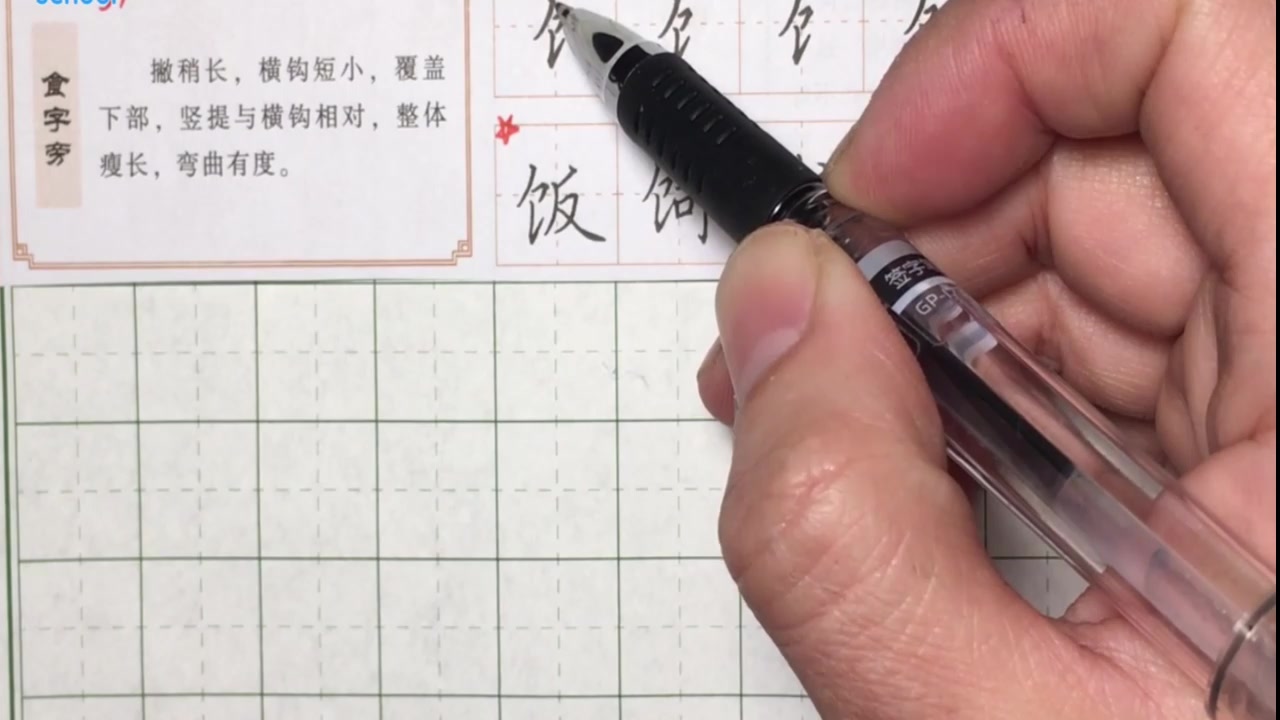 school
食字旁
撇稍长，横钩短小，覆盖
下部，竖提与横钩相对，整体
瘦长，弯曲有度。
饣 饣 饣
饭 饲
签字
GP-